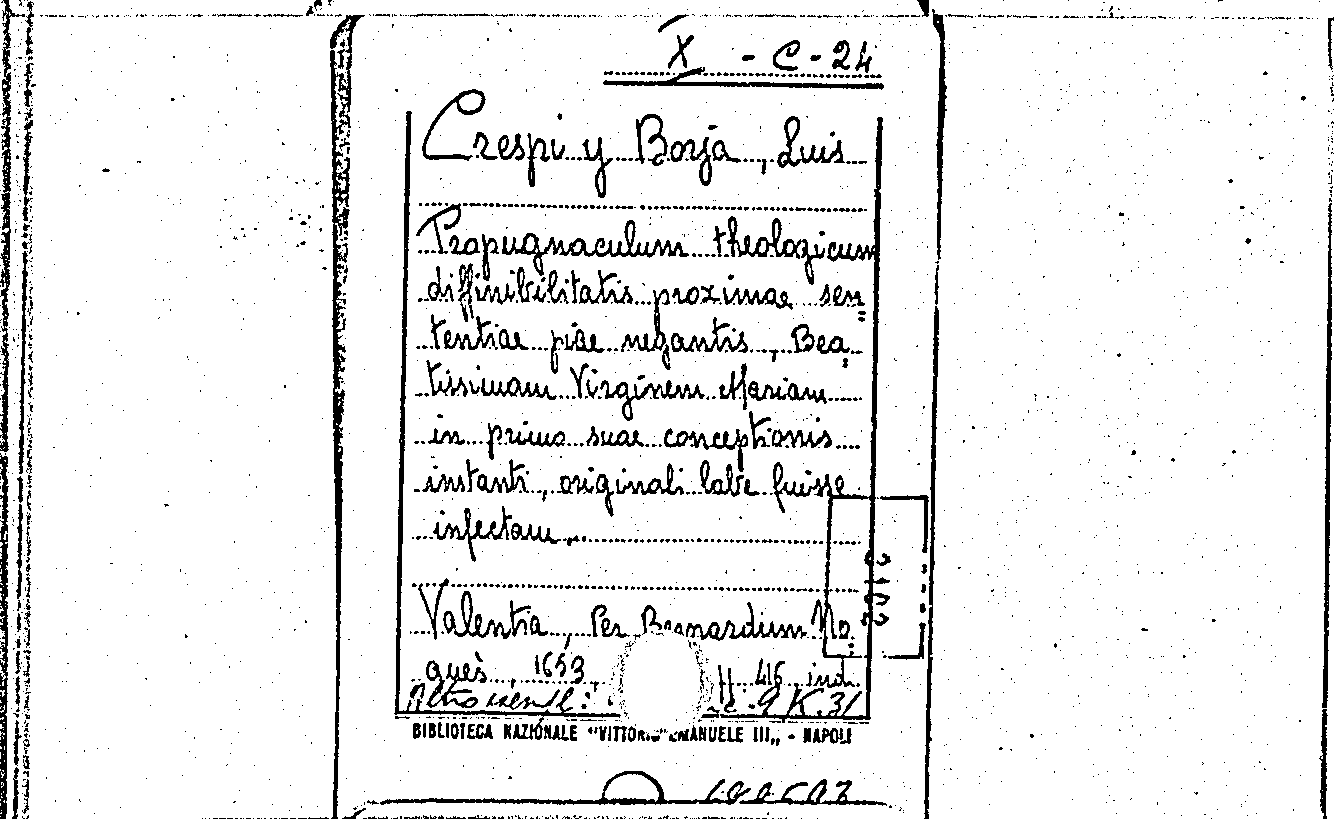 X - C - 24
Crespi y Borja, Luis
Propugnaculum theologicum
diffinibilitatis proximae sen
tentiae piae negantis, Bea
tissimam Virginem Mariam
in primo suae conceptionis
instanti, originali labe fuisse
infectam...
Valentia, Per Bernardum No
guès, 1653, 416 ind.
Altro esempl: 9 K.31
BIBLIOTECA NAZIONALE "VITTORIO EMANUELE III„ - NAPOLI